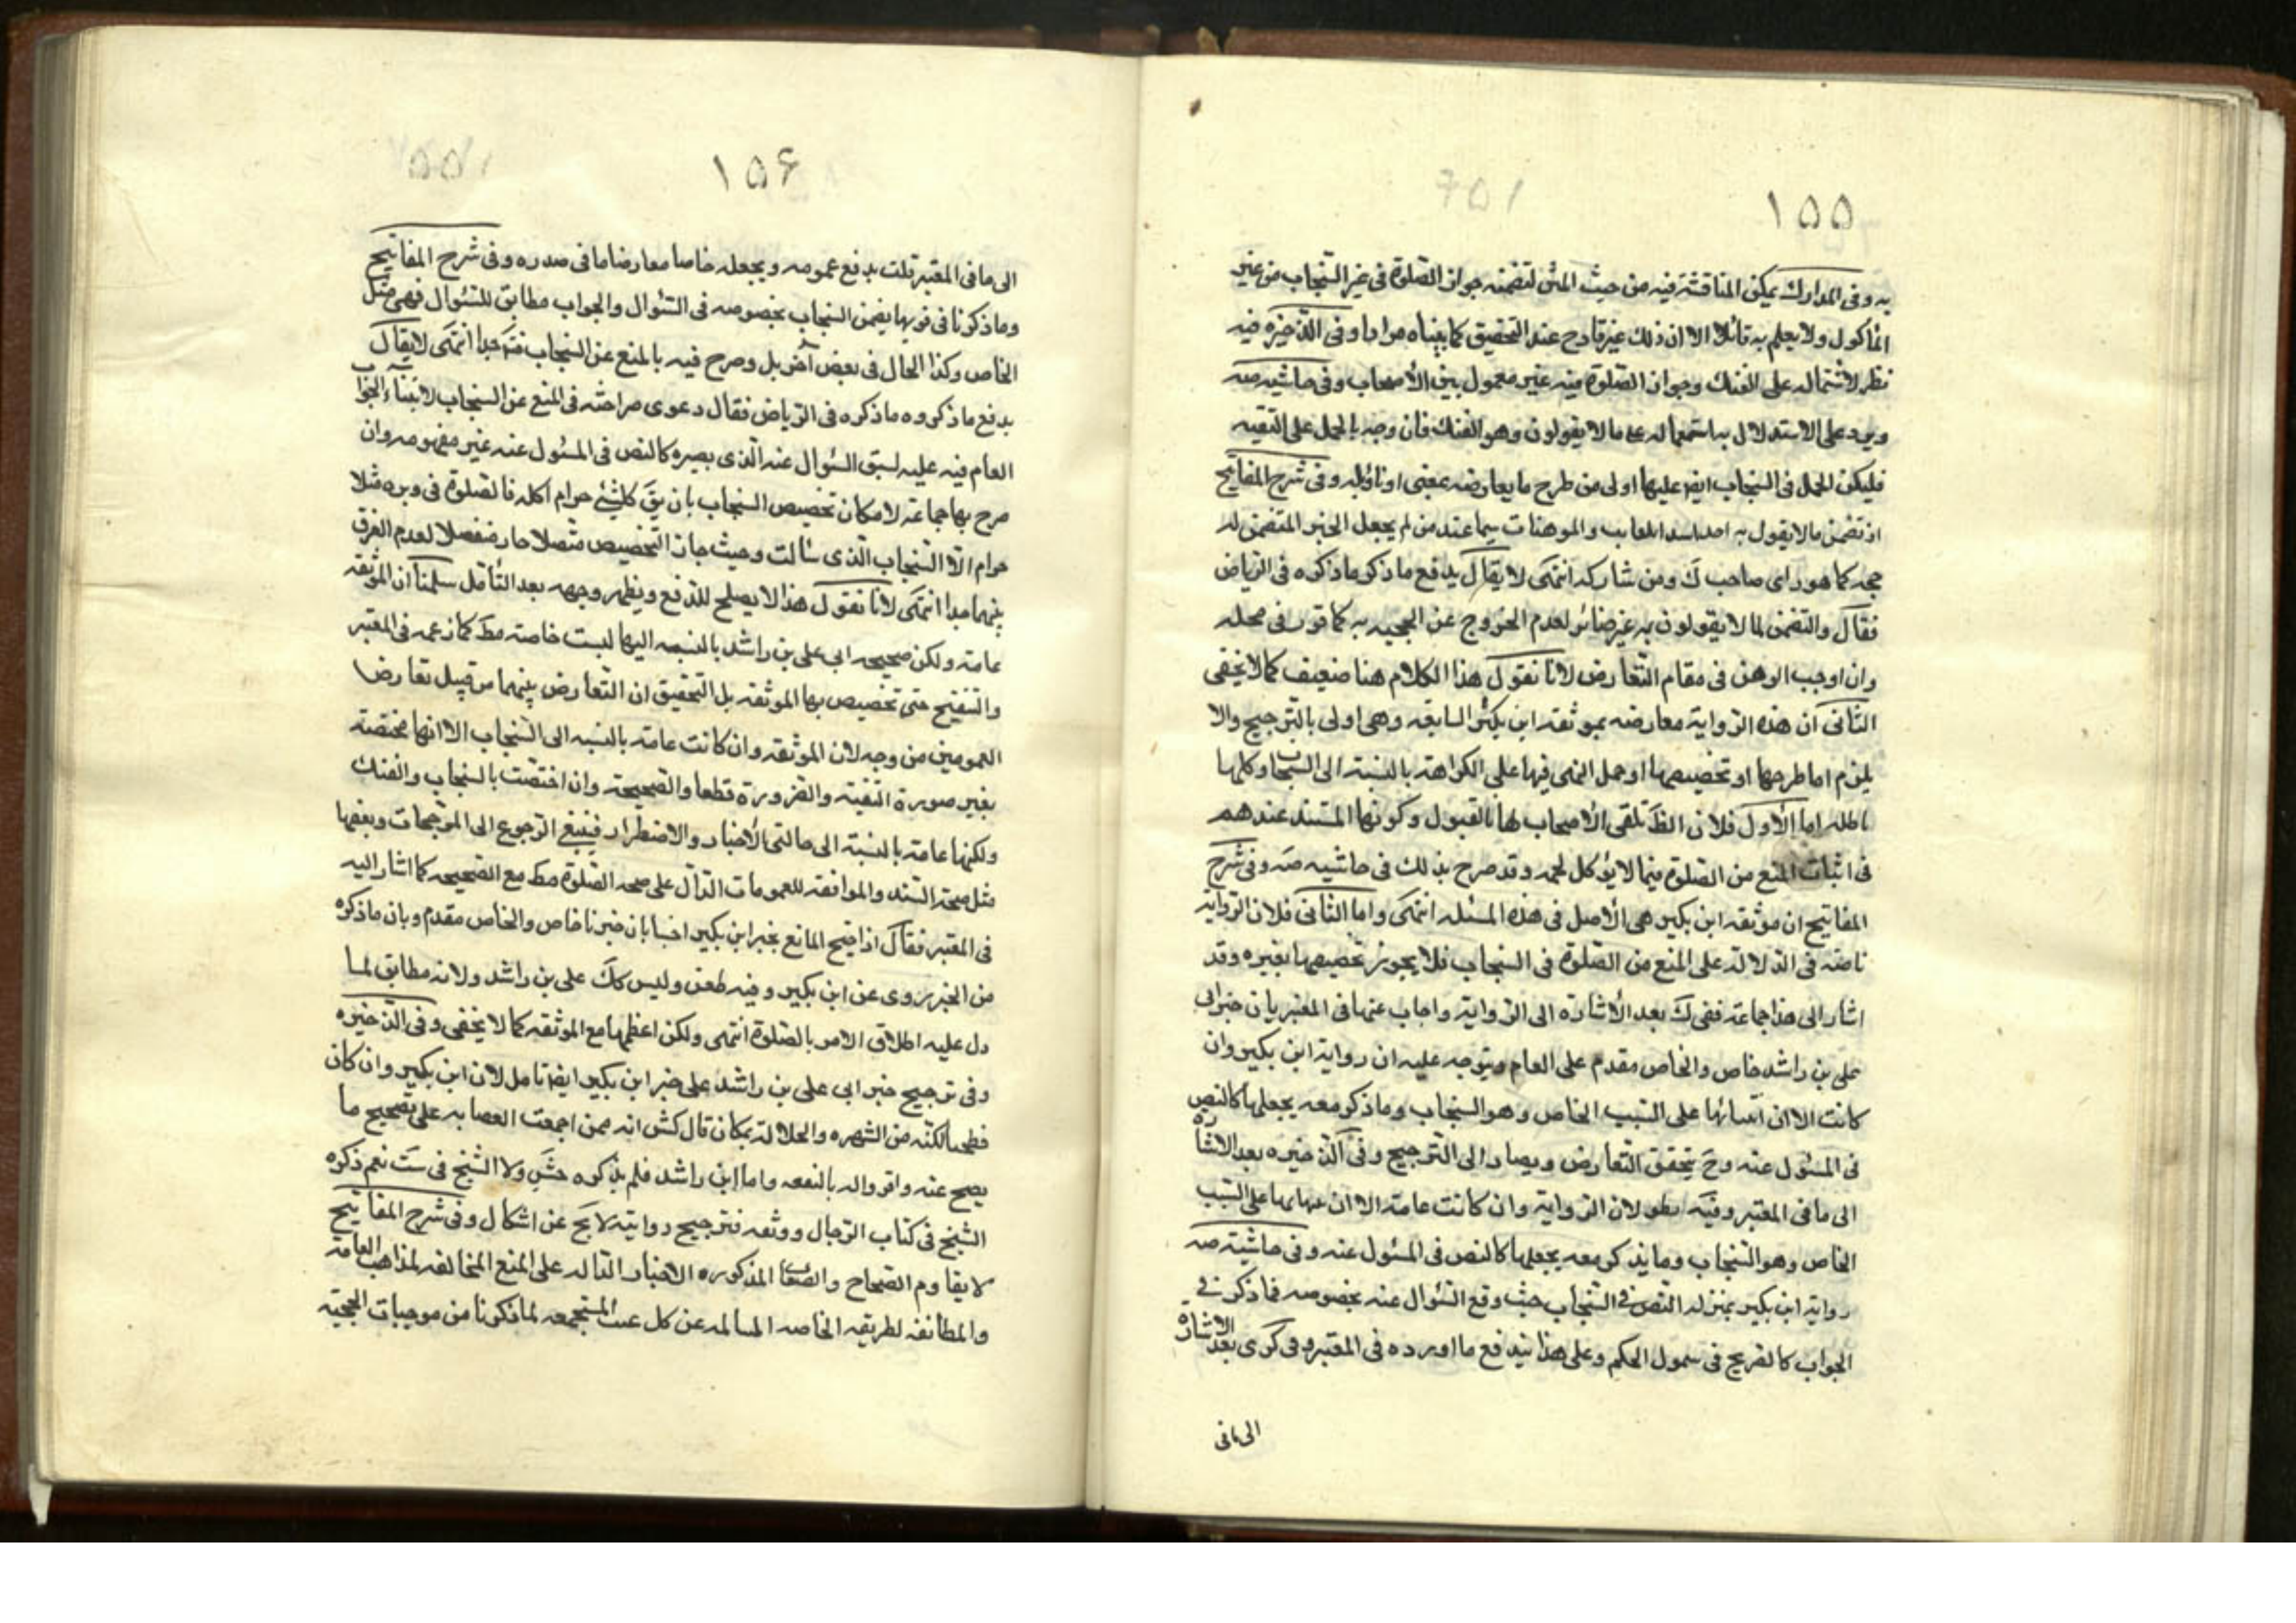 ١٥٥
به وفى المدارك يمكن المناقشة فيه من حيث المتن لتضمنه جواز الصلوة فى غير السنجاب من غير
المأكول ولا يعلم به قائلا الا ان ذلك غير قادح عند التحقيق كما بيناه مرارا وفى الذخيره فيه
نظر لاشتماله على الفنك وجواز الصلوة فيه غير معمول بين الأصحاب وفى حاشيه صه
ويرد على الاستدلال به اشتماله على ما لا يقولون وهو الفنك فان وجه بالحمل على التقيه
فليكن الحمل فى السنجاب ايضا عليها اولى من طرح ما يعارضه بمعنى او تاؤيله وفى شرح المفاتيح
اذ تضمن ما لا يقول به احد اسد المعايب والموهنات سيما عند من لم يجعل الخبر المتضمن له
حجه كما هو راى صاحب ك ومن شاركه انتهى لا يقال يدافع ما ذكر ما ذكره فى الرياض
فقال والتضمن لما لا يقولون به غير ضائر لعدم الخروج عن الحجيه به كما قرر فى محله
وان اوجب الوهن فى مقام التعارض لانا نقول هذا الكلام هنا ضعيف كما لا يخفى
الثانى ان هذه الرواية معارضه بموثقه ابن بكير السابقه وهى اولى بالترجيح والا
يلزم اما طرحها او تخصيصها او حمل النهى فيها على الكراهة بالنسبة الى السنجاب وكلها
باطله اما الأول فلان الظ تلقى الأصحاب لها بالقبول وكونها المستند عندهم
فى اثبات المنع من الصلوة فيما لا يؤكل لحمه وقد صرح بذلك فى حاشيه صه وفى شرح
المفاتيح ان موثقه ابن بكير هى الأصل فى هذه المسئله انتهى واما الثانى فلان الرواية
ناصه فى الدلالة على المنع من الصلوة فى السنجاب فلا يجوز تخصيصها بغيره وقد
اشار الى هذا جماعة ففى ك بعد الأشاره الى الرواية واجاب عنها فى المعتبر بان خبر ابى
على بن راشد خاص والخاص مقدم على العام ويتوجه عليه ان رواية ابن بكير وان
كانت الا ان ابتنائها على السبب الخاص وهو السنجاب وما ذكر معه يجعلها كالنص
فى المسئول عنه وح يتحقق التعارض ويصار الى الترجيح وفى الذخيره بعد الاشاره
الى ما فى المعتبر وفيه نظر لان الرواية وان كانت عامة الا ان ابتنائها على السبب
الخاص وهو السنجاب وما يذكر معه يجعلها كالنص فى المسئول عنه وفى حاشية صه
رواية ابن بكير بمنزله النص فى السنجاب حيث وقع السئوال عنه بخصوصه فما ذكر فى
الجواب كالصريح فى شمول الحكم وعلى هذا يندفع ما اورده فى المعتبر وفى كرى بعد الاشارة
الى ما فى
١٥۶
الى ما فى المعتبر قلت يدفع عمومه ويجعله خاصا معارضا ما فى صدره وفى شرح المفاتيح
وما ذكرنا فى قويها يضمن السنجاب بخصوصه فى السئوال والجواب مطابق للسئوال فهى مثل
الخاص وكذا الحال فى بعض آخر بل وصرح فيه بالمنع عن السنجاب فتدبر جدا انتهى لا يقال
يدفع ما ذكروه ما ذكره فى الرياض فقال دعوى صراحته فى المنع عن السنجاب لابتناء الجواب
العام فيه عليه لسبق السئوال عنه الذى يصيره كالنص فى المسئول عنه غير مفهومه وان
صرح بها جماعة لامكان تخصيص السنجاب بان يق كلشئ حرام اكله فالصلوة فى وبره مثلا
حرام الا السنجاب الذى سألت وحيث جاز التخصيص متصلا جاز منفصلا لعدم الفرق
بينهما جدا انتهى لأنا نقول هذا لا يصلح للدفع ويظهر وجهه بعد التأمل سلمنا ان الموثقه
عامة ولكن صحيحه ابى على بن راشد بالنسبه اليها ليست خاصة مط كما زعمه فى المعتبر
والتنقيح حتى تخصيص بها الموثقه بل التحقيق ان التعارض بينهما من قبيل تعارض
العمومين من وجه لان الموثقه وان كانت عامة بالنسبه الى السنجاب الا انها مختصة
بغير صورة التقية والضرورة قطعا والصحيحة وان اختصت بالسنجاب والفنك
ولكنها عامة بالنسبة الى حالتى الأختيار والاضطرار فينبغى الرجوع الى المرجحات وبعضها
مثل صحة السند والموافقه للعمومات الدال على صحه الصلوة مط مع الصحيحه كما اشار اليه
فى المعتبر فقال اذا احتج المانع بخبر ابن بكير اجبنا بان خبرنا خاص والخاص مقدم وبان ما ذكره
من الخبر روى عن ابن بكير وفيه طعن وليس كك على بن راشد ولانه مطابق لما
دل عليه اطلاق الامر بالصلوة انتهى ولكن اعظمها مع الموثقه كما لا يخفى وفى الذخيره
وفى ترجيح خبر ابى على بن راشد على خبر ابن بكير ايضا تامل لان ابن بكير وان كان
فطحيا لكنه من الشهره والجلالة بمكان قال كش انه ممن اجمعت العصابه على تصحيح ما
يصح عنه واقروا له بالفقه واما ابن راشد فلم يذكره جش ولا الشيخ فى ست نعم ذكره
الشيخ فى كتاب الرجال ووثقه فترجيح روايته لا يخ عن اشكال وفى شرح المفاتيح
لا يقاوم الصحاح والضعاف المذكوره الاخبار الداله على المنع المخالفه لمذاهب العامة
والمطابقه لطريقه الخاصه السالمه عن كل عيب المستجمعه لما ذكرنا من موجبات الحجية